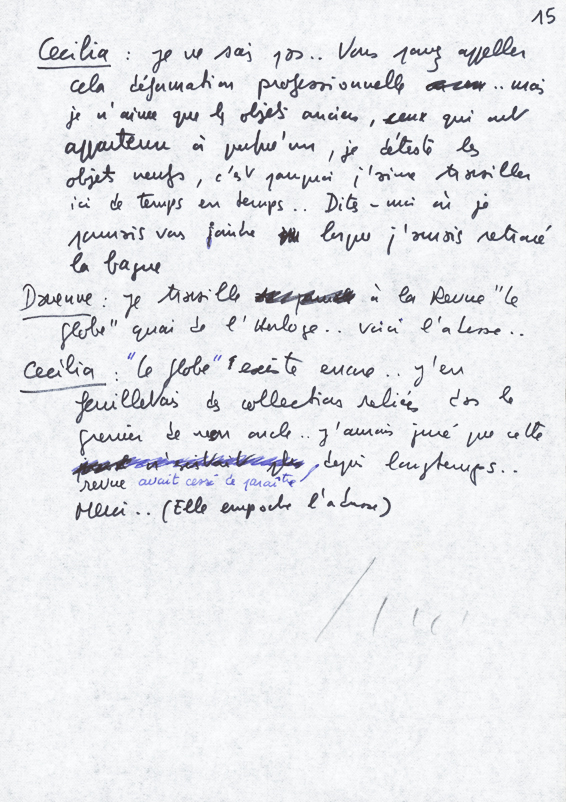 15
Cecilia : je ne sais pas.. Vous pouvez appeller
cela déformation professionnelle .. mais
je n'aime que les objets anciens, ceux qui ont
appartenu à quelqu'un, je déteste les
objets neufs, c'est pourquoi j'aime travailler
ici de temps en temps.. Dites-moi où je
pourrais vous joindre lorsque j'aurais retrouvé
la bague
Davenne : je travaille à la Revue "le
globe" quai de l'Horloge.. voici l'adresse..
Cecilia : "le globe" existe encore.. j'en
feuilletais des collections reliées dans le
grenier de mon oncle.. j'aurais juré que cette
revue avait cessé de paraître depuis longtemps..
Merci.. (Elle empoche l'adresse)